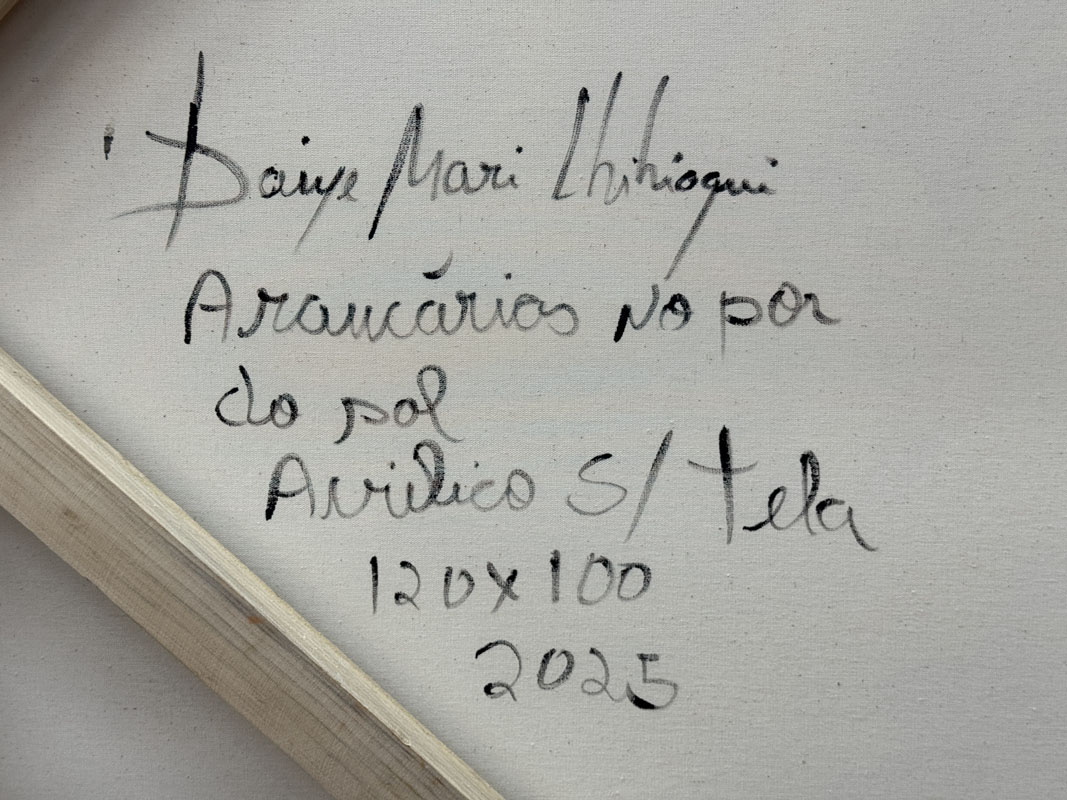 Daiye Mari
Araucárias no por
do sol
Acrilico S/ tela
120x100
2025